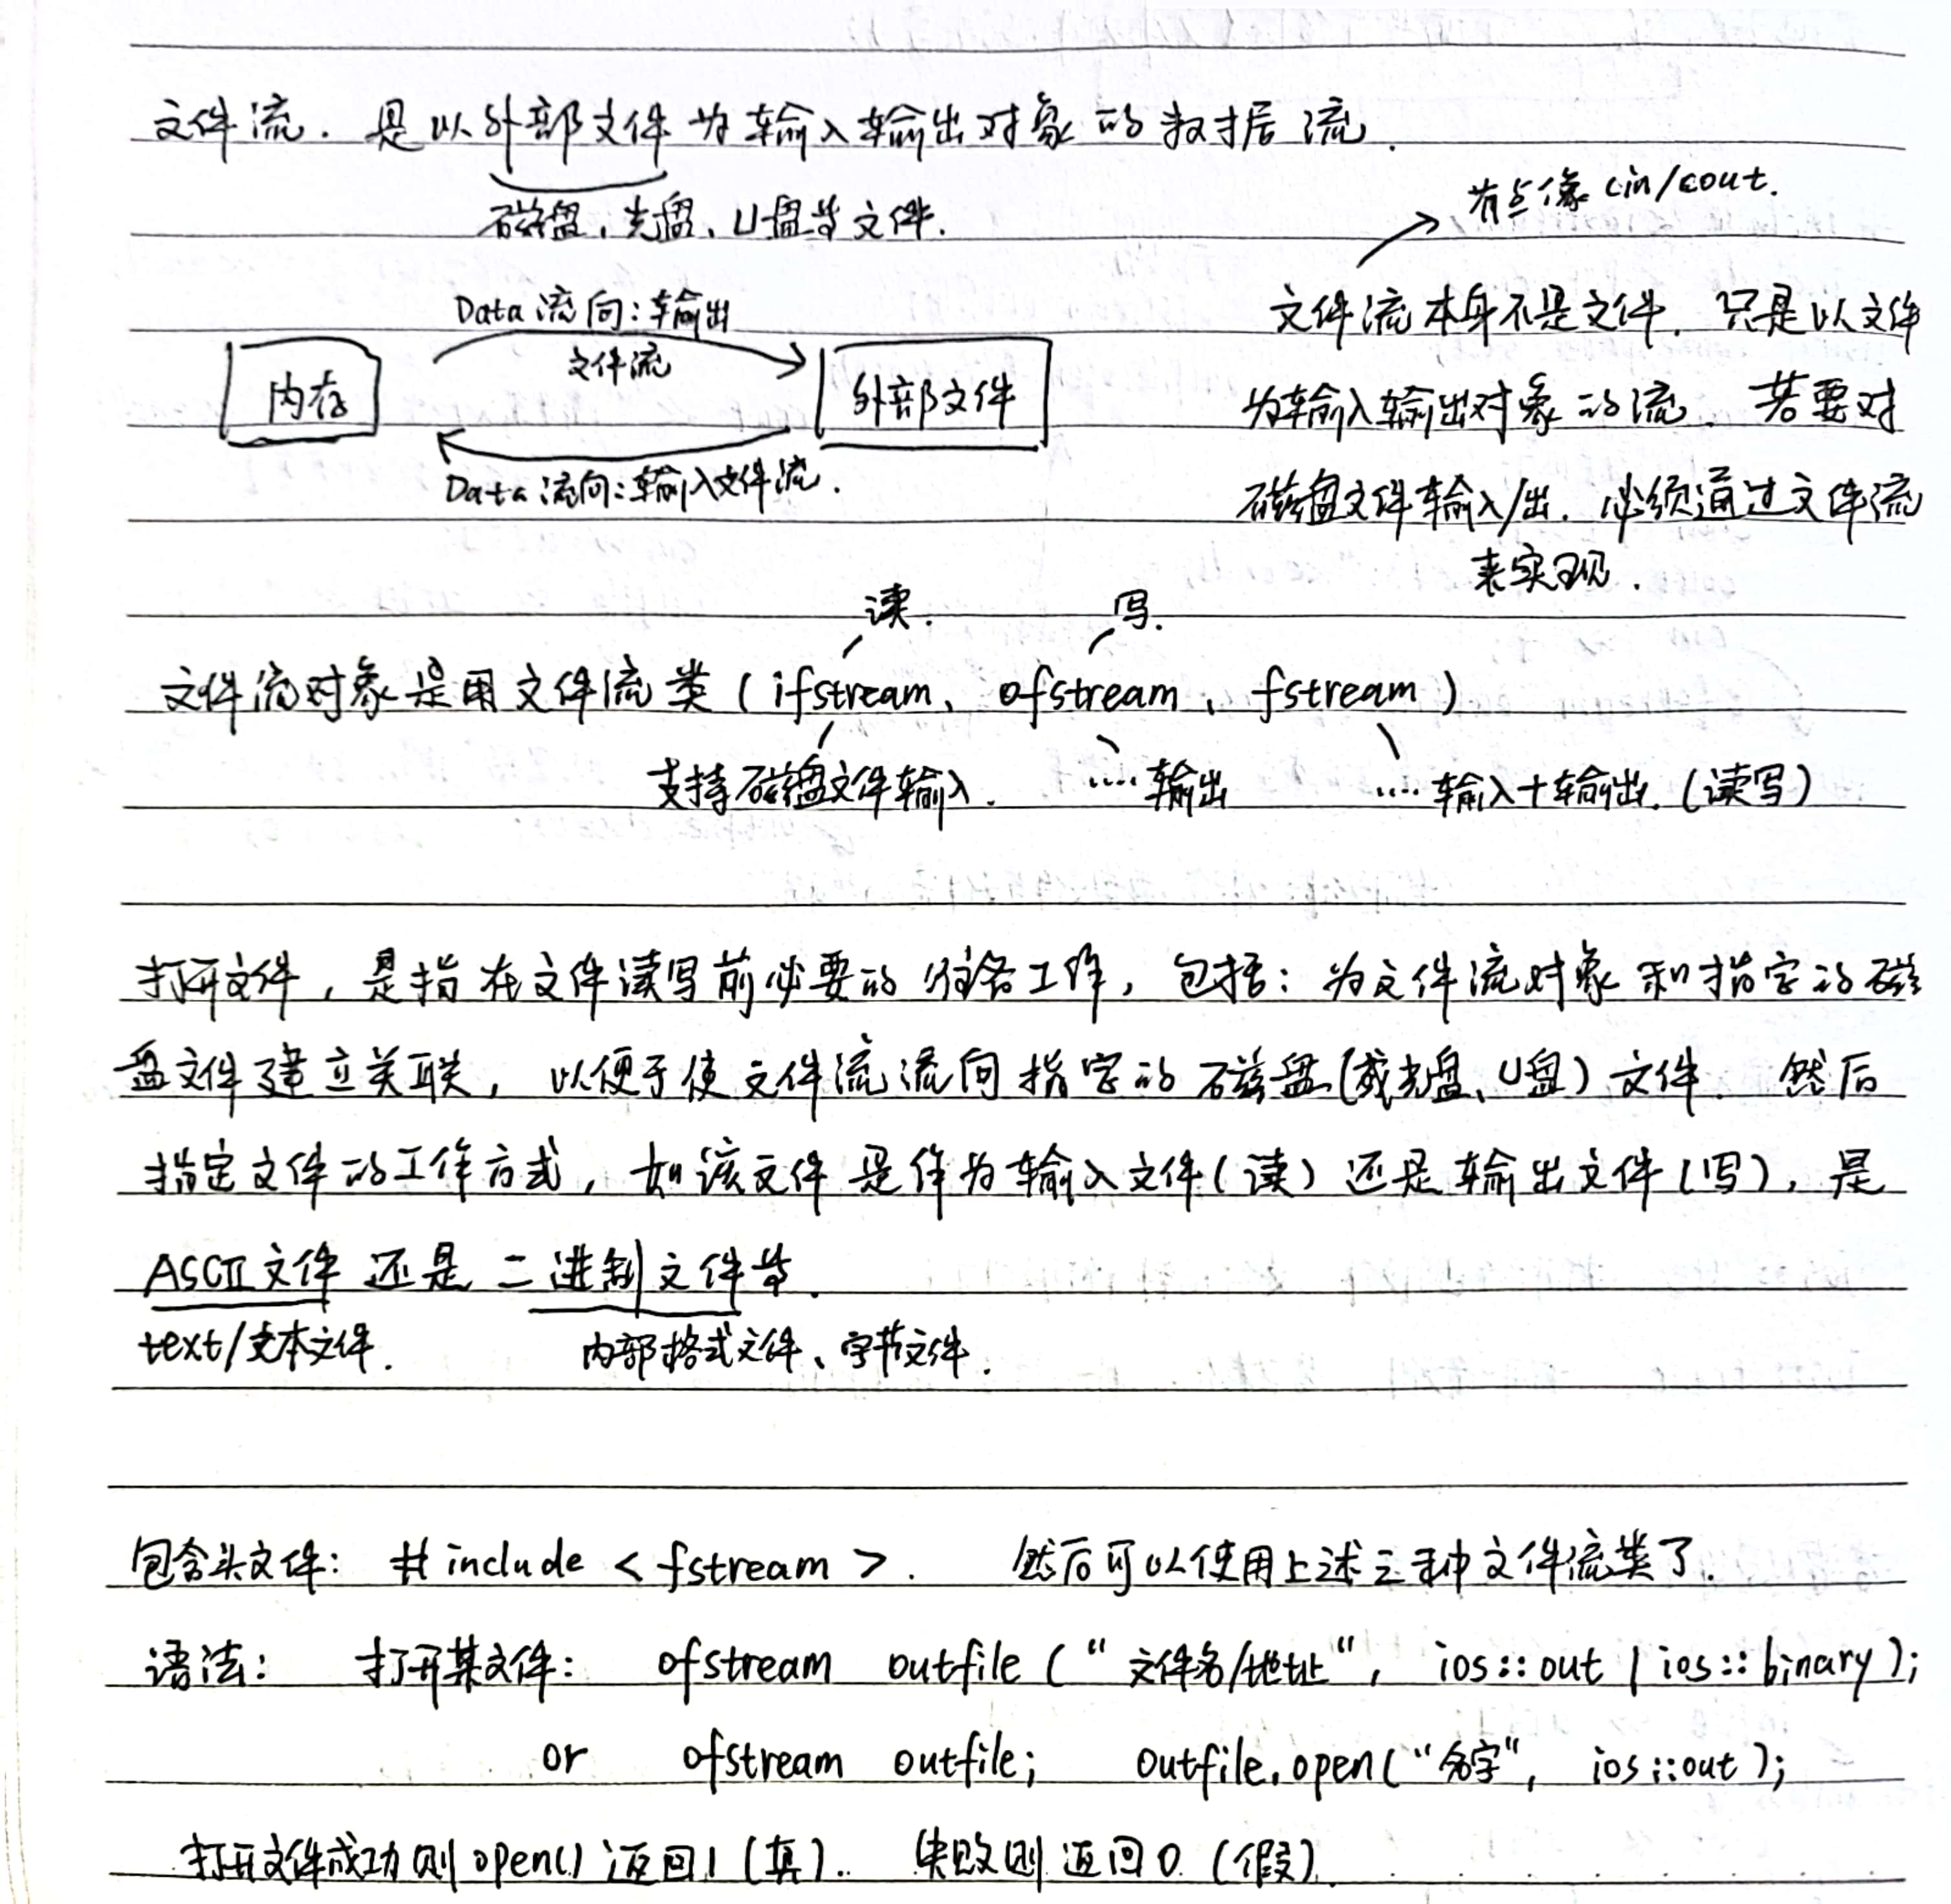 文件流. 是以外部文件为输入输出对象的数据流.
磁盘、光盘、U盘等文件.
有点像 cin/cout.
Data 流向: 输出
文件流
内存
外部文件
Data 流向: 输入文件流.
文件流本身不是文件. 只是以文件
为输入输出对象的流. 若要对
磁盘文件输入/出. 必须通过文件流
来实现.
读. 写.
文件流对象是用文件流类 (ifstream、ofstream、fstream)
支持磁盘文件输入. ····输出 ····输入+输出. (读写)
打开文件, 是指在文件读写前必要的准备工作, 包括: 为文件流对象和指定的磁
盘文件建立关联, 以便于使文件流流向指定的磁盘(或光盘、U盘) 文件. 然后
指定文件的工作方式, 如该文件是作为输入文件(读) 还是输出文件(写), 是
ASCII文件 还是 二进制文件等.
text/文本文件. 内部格式文件、字节文件.
包含头文件: #include <fstream>. 然后可以使用上述三种文件流类了.
语法: 打开某文件: ofstream outfile ("文件名/地址", ios::out | ios::binary);
or ofstream outfile; outfile.open("名字", ios::out);
打开文件成功则open()返回1 (真).. 失败则返回0. (假)